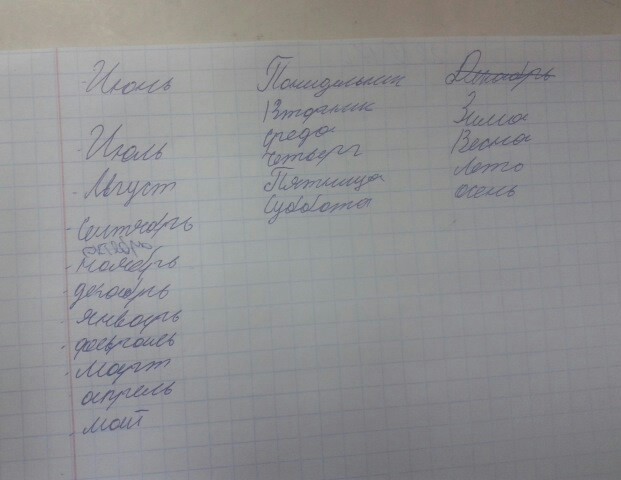 Июнь
Июль
Август
Сентябрь
октябрь
ноябрь
декабрь
январь
февраль
Март
апрель
май
Понидельник
Вторник
среда
четверг
Пятница
Суббота
Декабрь
Зима
Весна
Лето
осень